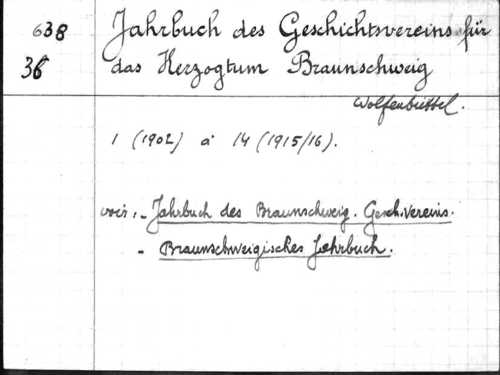 638 Jahrbuch des Geschichtsvereins für
36 das Herzogtum Braunschweig
Wolfenbüttel.
1 (1902) à 14 (1915/16).
voir : - Jahrbuch des Braunschweig. Gesch. Vereins.
- Braunschweigisches Jahrbuch.